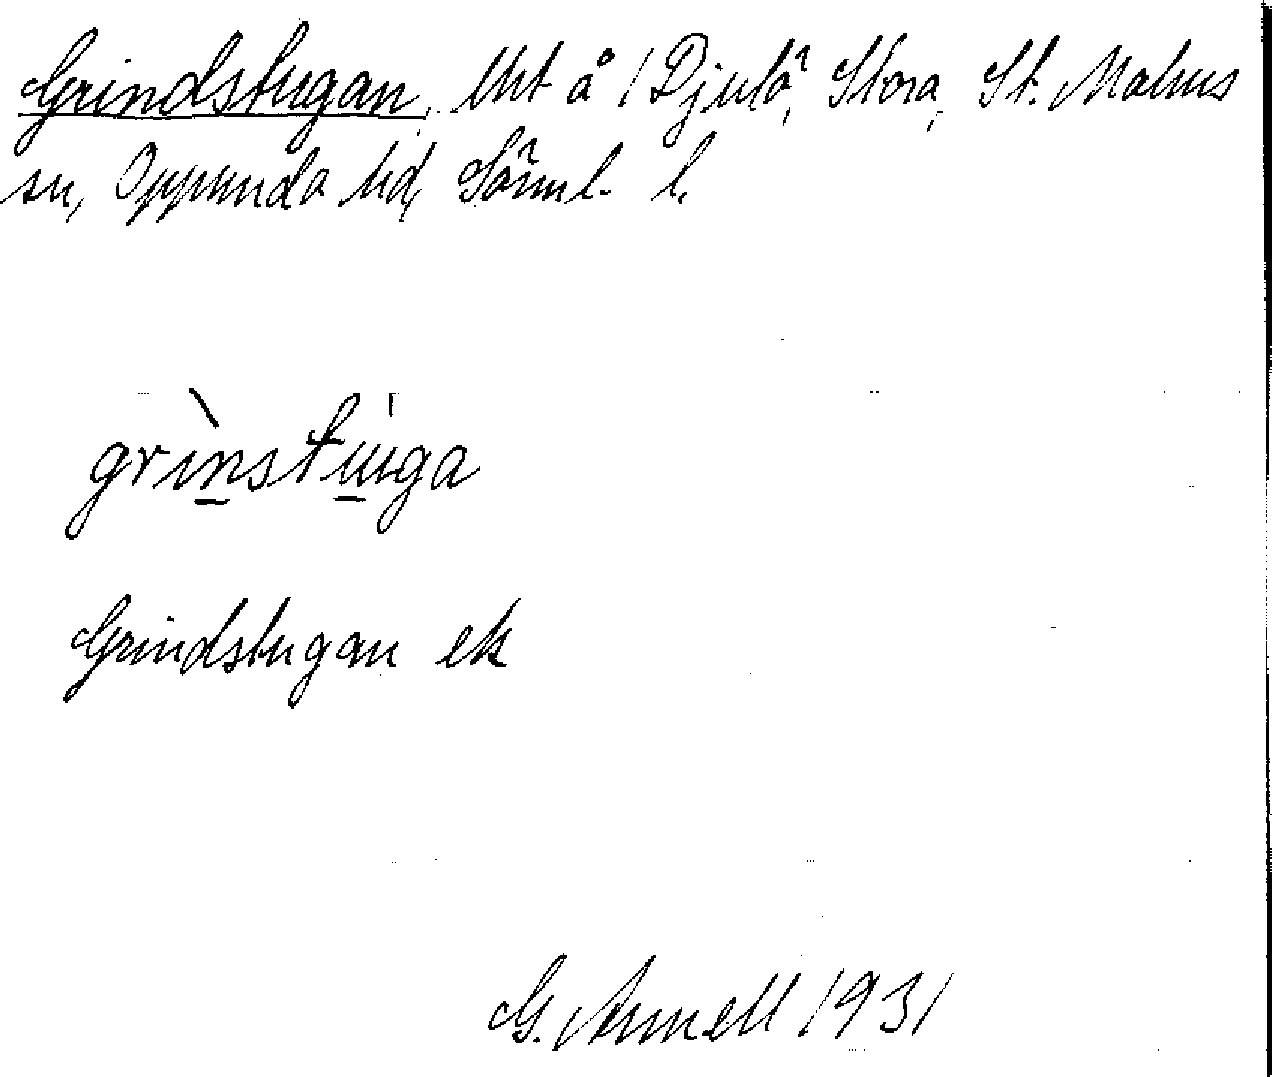 Grindstugan, Utt å 1 Djulö, Stora, St. Malms
sn, Oppunda hd, Södml. l.
grinstuga
Grindstugan ek
G. Armell 1931